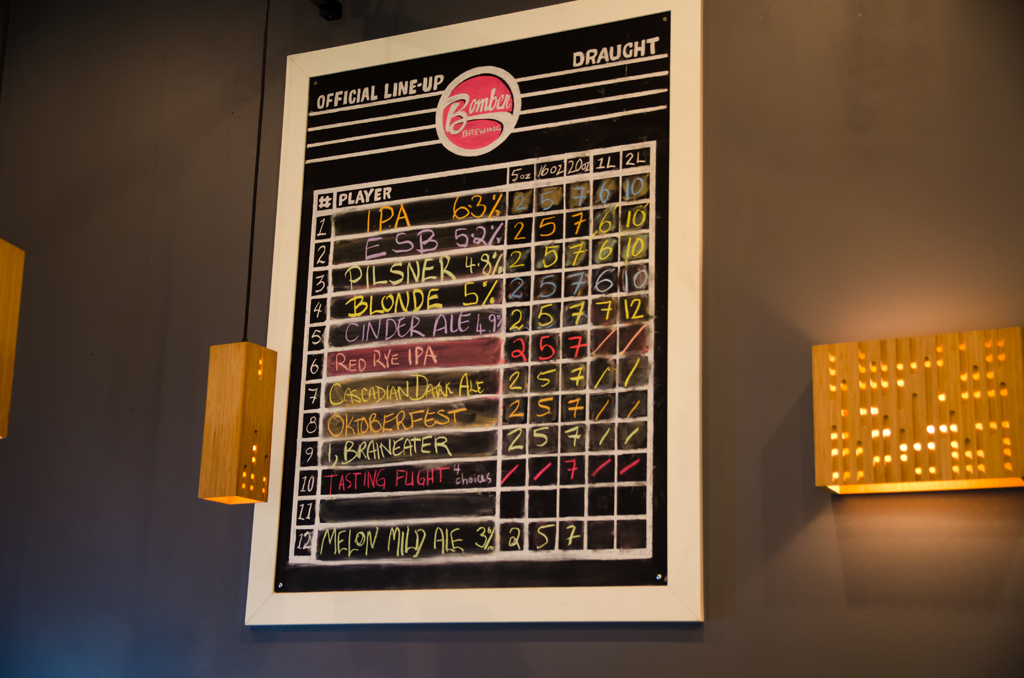 OFFICIAL LINE-UP
DRAUGHT
Bomber
BREWING
# PLAYER 5oz 16oz 20oz 1L 2L
1 IPA 6.3% 2 5 7 6 10
2 ESB 5.2% 2 5 7 6 10
3 PILSNER 4.8% 2 5 7 6 10
4 BLONDE 5% 2 5 7 6 10
5 CINDER ALE 4.9% 2 5 7 7 12
6 RED RYE IPA 2 5 7 / /
7 CASCADIAN DARK ALE 2 5 7 / /
8 OKTOBERFEST 2 5 7 / /
9 I, BRAINEATER 2 5 7 / /
10 TASTING FLIGHT 4 choices / / 7 / /
11
12 MELON MILD ALE 3% 2 5 7